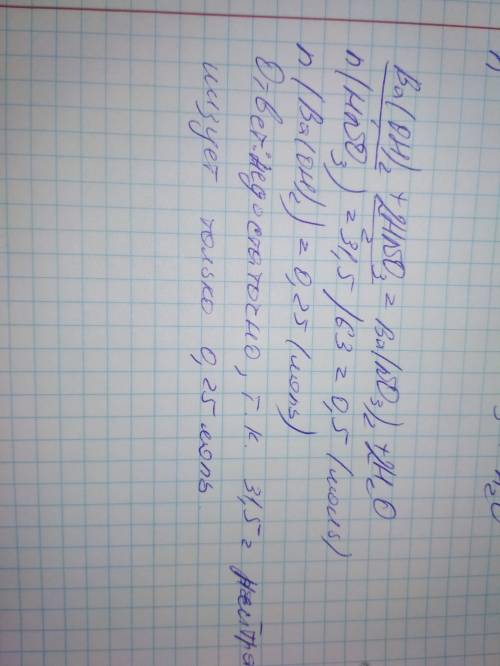 Ba(OH)₂ + 2HNO₃ = Ba(NO₃)₂ + 2H₂O
1 2
n(HNO₃) = 31,5 / 63 = 0,5 (моль)
n(Ba(OH)₂) = 0,25 (моль)
Ответ: недостаточно, т.к. 31,5г нейтра
лизует только 0,25 моль.
H₂O